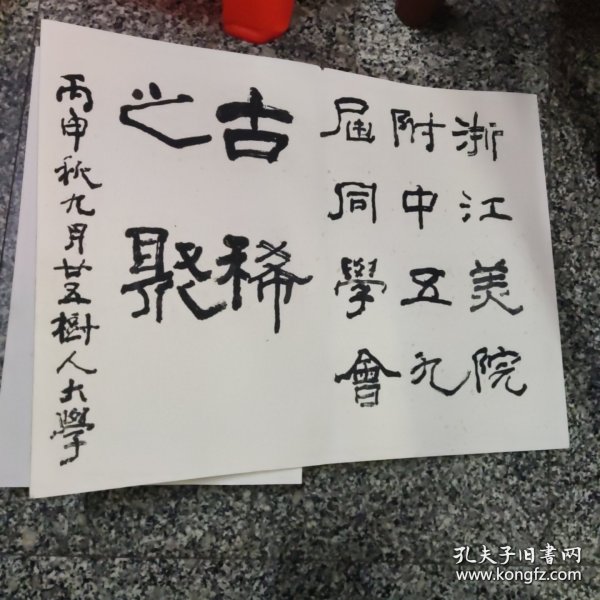 浙江美院
附中五九
届同學會
古稀
之聚
丙申秋九月廿五樹人大學
孔夫子旧書网
www.kongfz.com